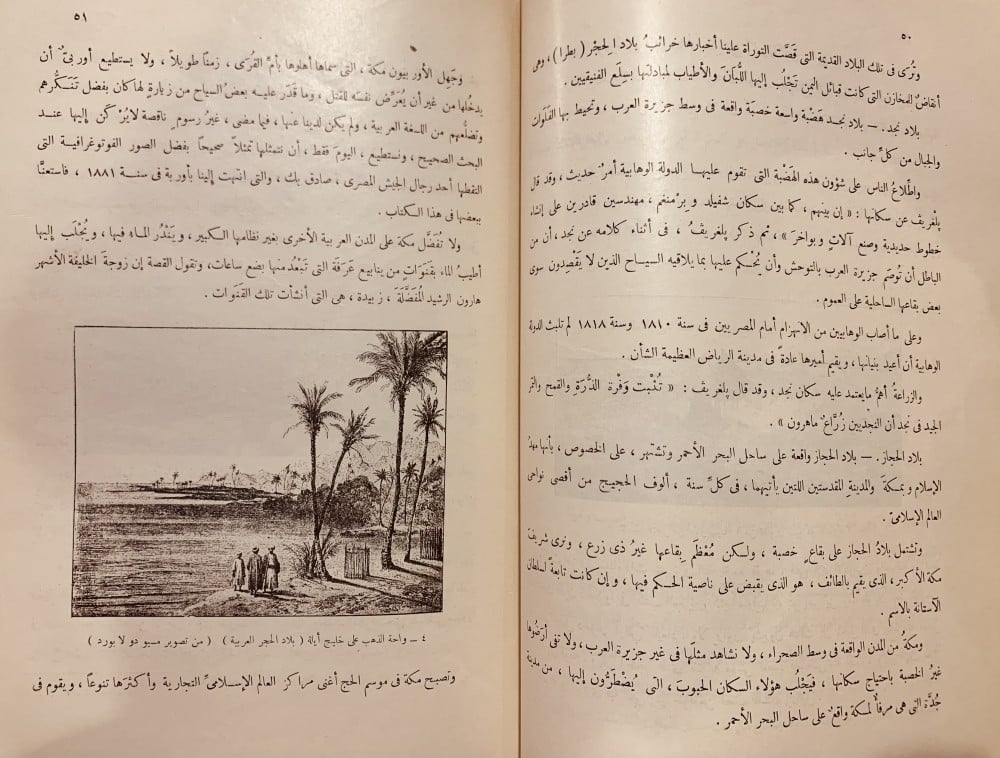 ٥٠
وتُرَى فى تلك البلاد القديمة التى قَصَّت التوراة علينا أخبارها خرائبُ بلاد الحِجْر ( بطرا ) ، وهى
أنقاضُ المخازن التى كانت قبائل اليمن تَجْلُب إليها اللُّبَانَ والأطياب لمبادلتها بسِلَع الفنيقيين .
بلاد نجد . — بلاد نجد هَضْبة واسعة خصبة واقعة فى وسط جزيرة العرب ، وتحيط بها الفَلَوات
والجبال من كلِّ جانب .
واطِّلاعُ الناس على شؤون هذه الهضبة التى تقوم عليها الدولة الوهابية أمرٌ حديث ، وقد قال
پلغريف عن سكانها : « إن بينهم ، كما بين سكان شفيلد وبِرْمنغم ، مهندسين قادرين على إنشاء
خطوط حديدية وصنع آلاتٍ وبواخرَ » ، ثم ذكر پلغريفُ ، فى أثناء كلامه عن نجد ، أن من
الباطل أن تُوصَم جزيرة العرب بالتوحش وأن يُحْكم عليها بما يلاقيه السياح الذين لا يَقْصِدون سوى
بعض بقاعها الساحلية على العموم .
وعلى ما أصاب الوهابيين من الانهزام أمام المصريين فى سنة ١٨١٠ وسنة ١٨١٨ لم تلبث الدولة
الوهابية أن أعيد بنيانها ، ويقيم أميرها عادةً فى مدينة الرياض العظيمة الشأن .
والزراعةُ أهمُّ مايعتمد عليه سكان نجد ، وقد قال پلغريف : « تُثْبت وَفْرة الذُّرَةِ والقمح والتمر
الجيد فى نجد أن النجديين زُرَّاعٌ ماهرون » .
بلاد الحجاز . — بلاد الحجاز واقعة على ساحل البحر الأحمر وتشتهر ، على الخصوص ، بأنها مهدُ
الإسلام وبمكةَ والمدينةِ المقدستين اللتين يأتيهما ، فى كلِّ سنة ، ألوف الحجيج من أقصى نواحى
العالم الإسلامىّ .
وتشتمل بلادُ الحجاز على بقاعٍ خصبة ، ولكن مُعْظَم بِقاعها غيرُ ذى زرع ، وترى شريفَ
مكة الأكبرَ ، الذى يقيم بالطائف ، هو الذى يقبض على ناصية الحكم فيها ، وإن كانت تابعةً لسلطان
الآستانة بالاسم .
ومكةُ من المدن الواقعة فى وسط الصحراء ، ولا نشاهد مثلَها فى غير جزيرة العرب ، ولا تفى أرَضُوها
غيرُ الخصبة باحتياج سكانها ، فيَجْلُب هؤلاء السكان الحبوبَ ، التى يُضْطَرُّون إليها ، من مدينة
جُدَّةَ التى هى مرفأٌ لمكة واقعٌ على ساحل البحر الأحمر .
٥١
وجَهِل الأوربيون مكة ، التى سماها أهلوها بأمِّ القُرَى ، زمنًا طويلاً ، ولا يستطيع أوربىٌّ أن
يدخُلها من غير أن يُعَرِّض نفسَه للقتل ، وما قَدَر عليه بعضُ السياح من زيارةٍ لها كان بفضل تَنَكُّرهم
وتضلُّعهم من اللغة العربية ، ولم يكن لدينا عنها ، فيما مضى ، غيرُ رسومٍ ناقصة لايُرْكَن إليها عند
البحث الصحيح ، ونستطيع ، اليومَ فقط ، أن نتمثلها تمثلاً صحيحًا بفضل الصور الفوتوغرافية التى
التقطها أحد رجال الجيش المصرى ، صادق بك ، والتى انتهت إلينا بأوربة فى سنة ١٨٨١ ، فاستعنَّا
ببعضها فى هذا الكتاب .
ولا تَفْضُل مكة على المدن العربية الأخرى بغير نظامها الكبير ، ويَنْدُر الماء فيها ، ويُجْلَب إليها
أطيبُ الماء بقَنَواتٍ من ينابيع عَرَفَةَ التى تَبْعُد منها بضع ساعات ، وتقول القصة إن زوجةَ الخليفة الأشهر
هارون الرشيد المُفَضَّلَةَ ، زبيدة ، هى التى أنشأت تلك القَنَوات .
٤ — واحة الذهب على خليج أيلة ( بلاد الحجر العربية ) ( من تصوير مسيو دو لا بورد )
وتصبح مكة فى موسم الحج أغنى مراكز العالم الإسلامىِّ التجارية وأكثرَها تنوعًا ، ويقوم فى